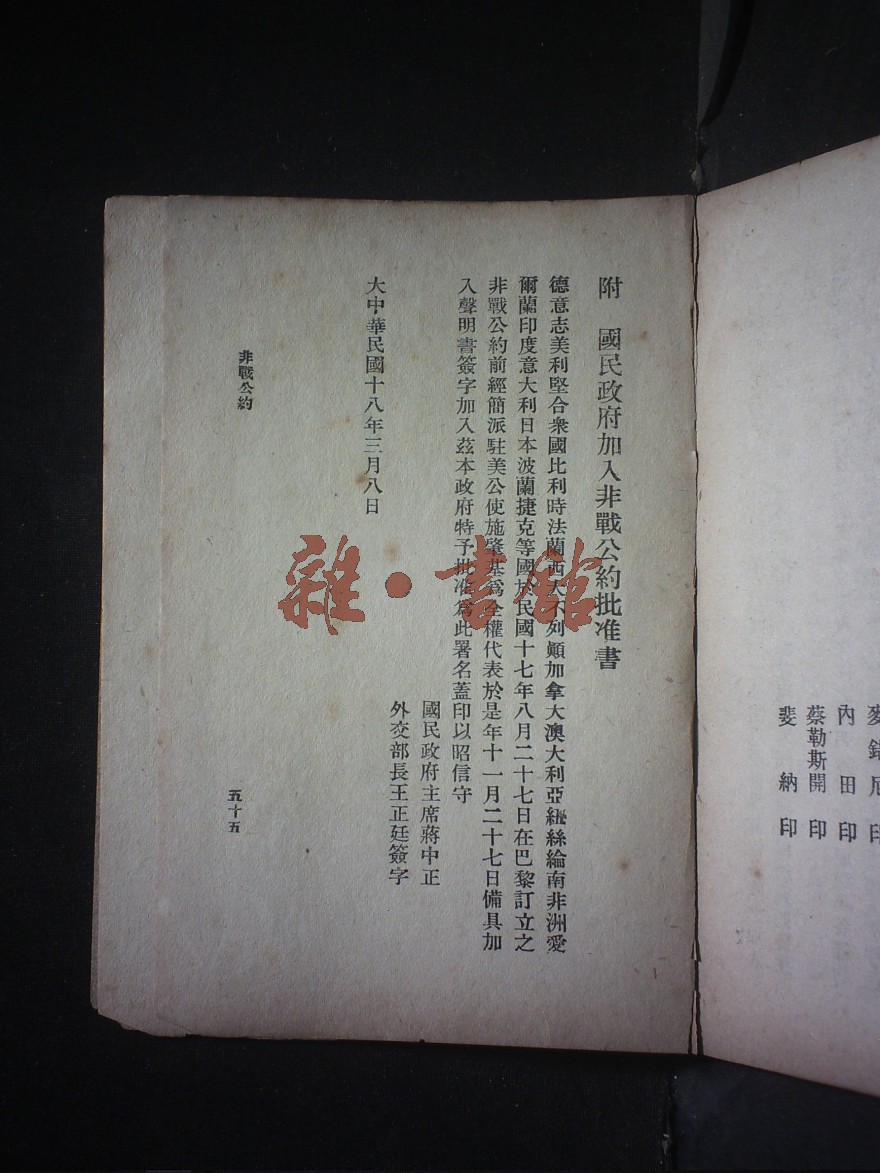 麥 鏽 尼 印
內 田 印
蔡勒斯開 印
斐 納 印
附 國民政府加入非戰公約批准書
德意志美利堅合衆國比利時法蘭西大不列顚加拿大澳大利亞紐絲綸南非洲愛
爾蘭印度意大利日本波蘭捷克等國於民國十七年八月二十七日在巴黎訂立之
非戰公約前經簡派駐美公使施肇基爲全權代表於是年十一月二十七日備具加
入聲明書簽字加入茲本政府特予批准爲此署名蓋印以昭信守
國民政府主席蔣中正
外交部長王正廷簽字
大中華民國十八年三月八日
非戰公約
五十五
雜·書館